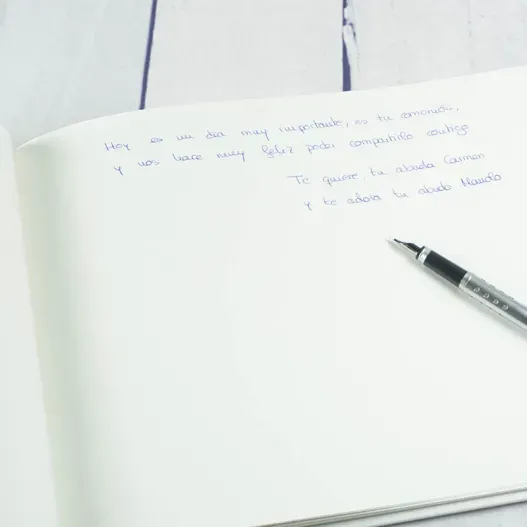 Hoy es un día muy importante, es tu comunión,
y nos hace muy feliz poder compartirlo contigo
Te quiere, tu abuela Carmen
y te adora tu abuelo Manolo